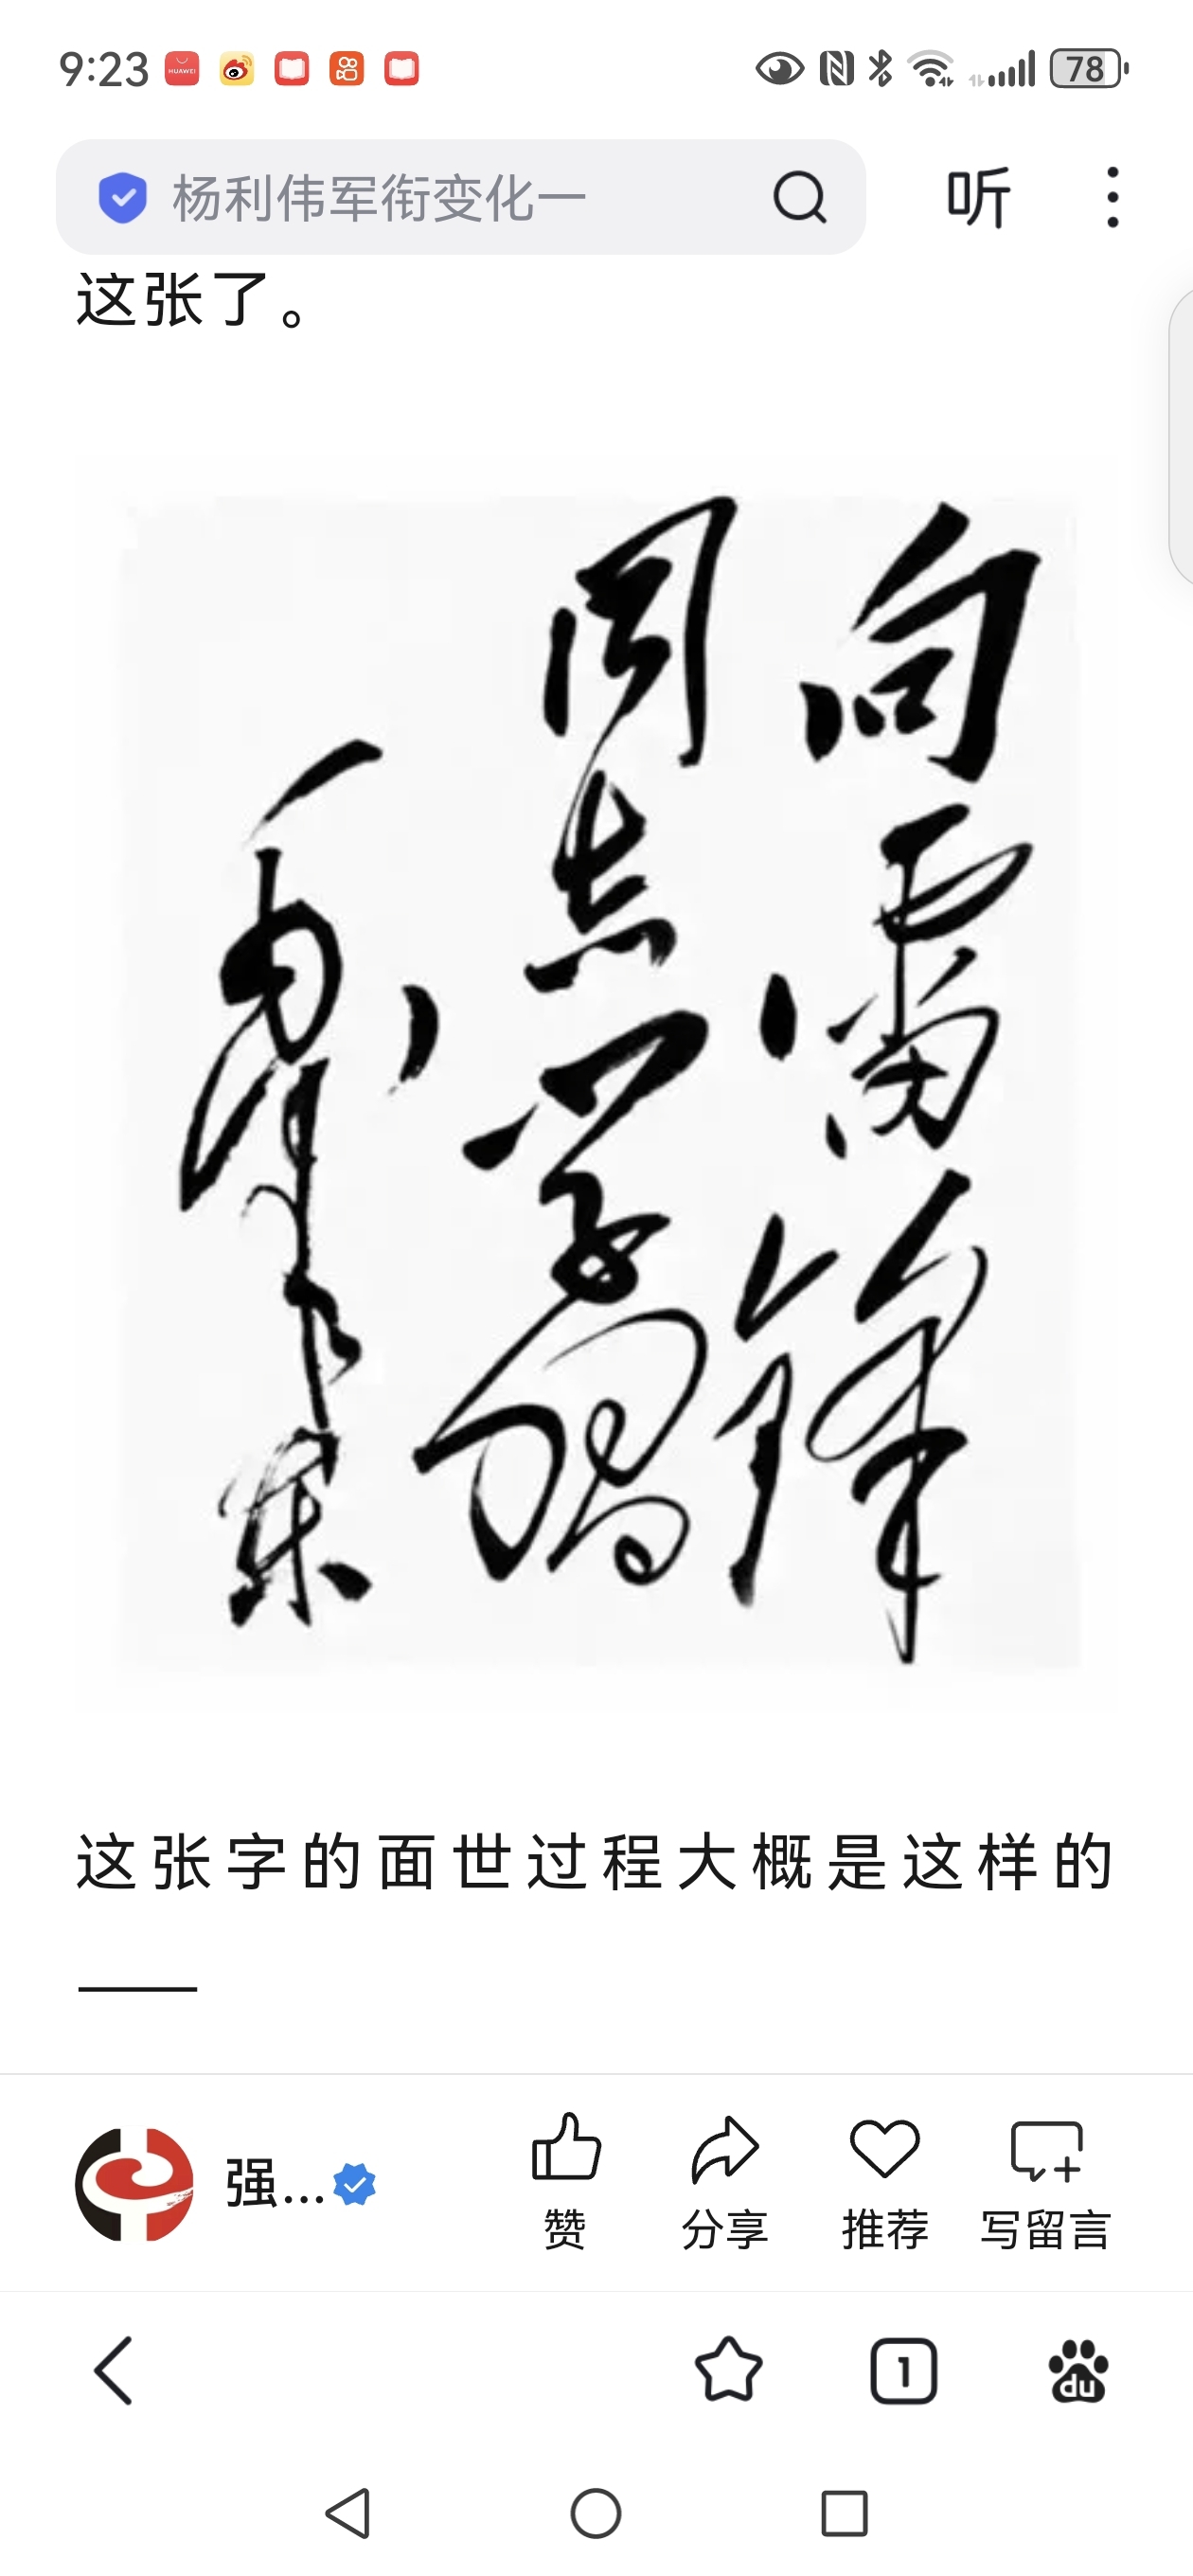 9:23
HUAWEI
78
杨利伟军衔变化一
听
这张了。
向雷锋
同志学习
毛泽东
这张字的面世过程大概是这样的
——
强...
赞
分享
推荐
写留言
1
du